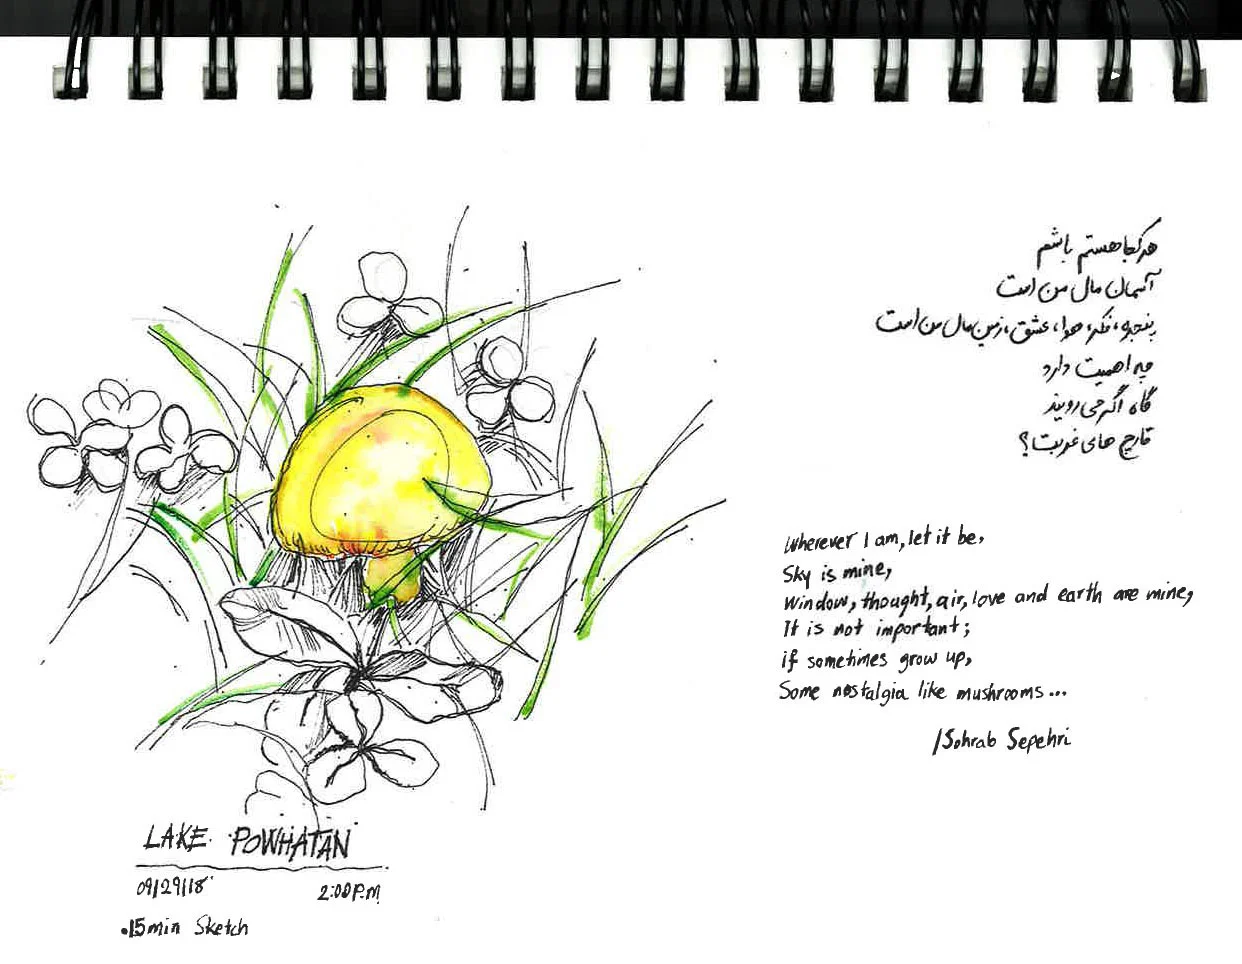 هر کجا هستم باشم
آسمان مال من است
پنجره، فکر، هوا، عشق، زمین مال من است
چه اهمیت دارد
گاه اگر می رویند
قارچ های غربت؟
Wherever I am, let it be,
Sky is mine,
Window, thought, air, love and earth are mine,
It is not important;
if sometimes grow up,
Some nostalgia like mushrooms...
/Sohrab Sepehri
LAKE POWHATAN
09/29/18 2:00P.M
.15min Sketch